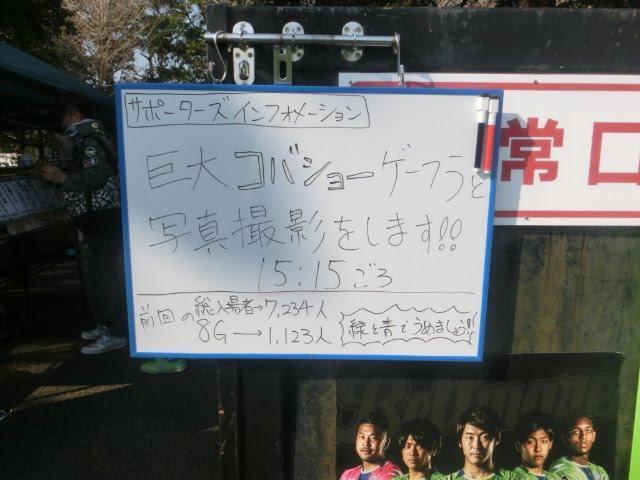 サポーターズインフォメーション
巨大コバショーゲーフラと
写真撮影をします!!
15:15ごろ
前回の総入場者→7,234人
8G→1,123人
緑と青でうめましょう!!
常口
Bellmare